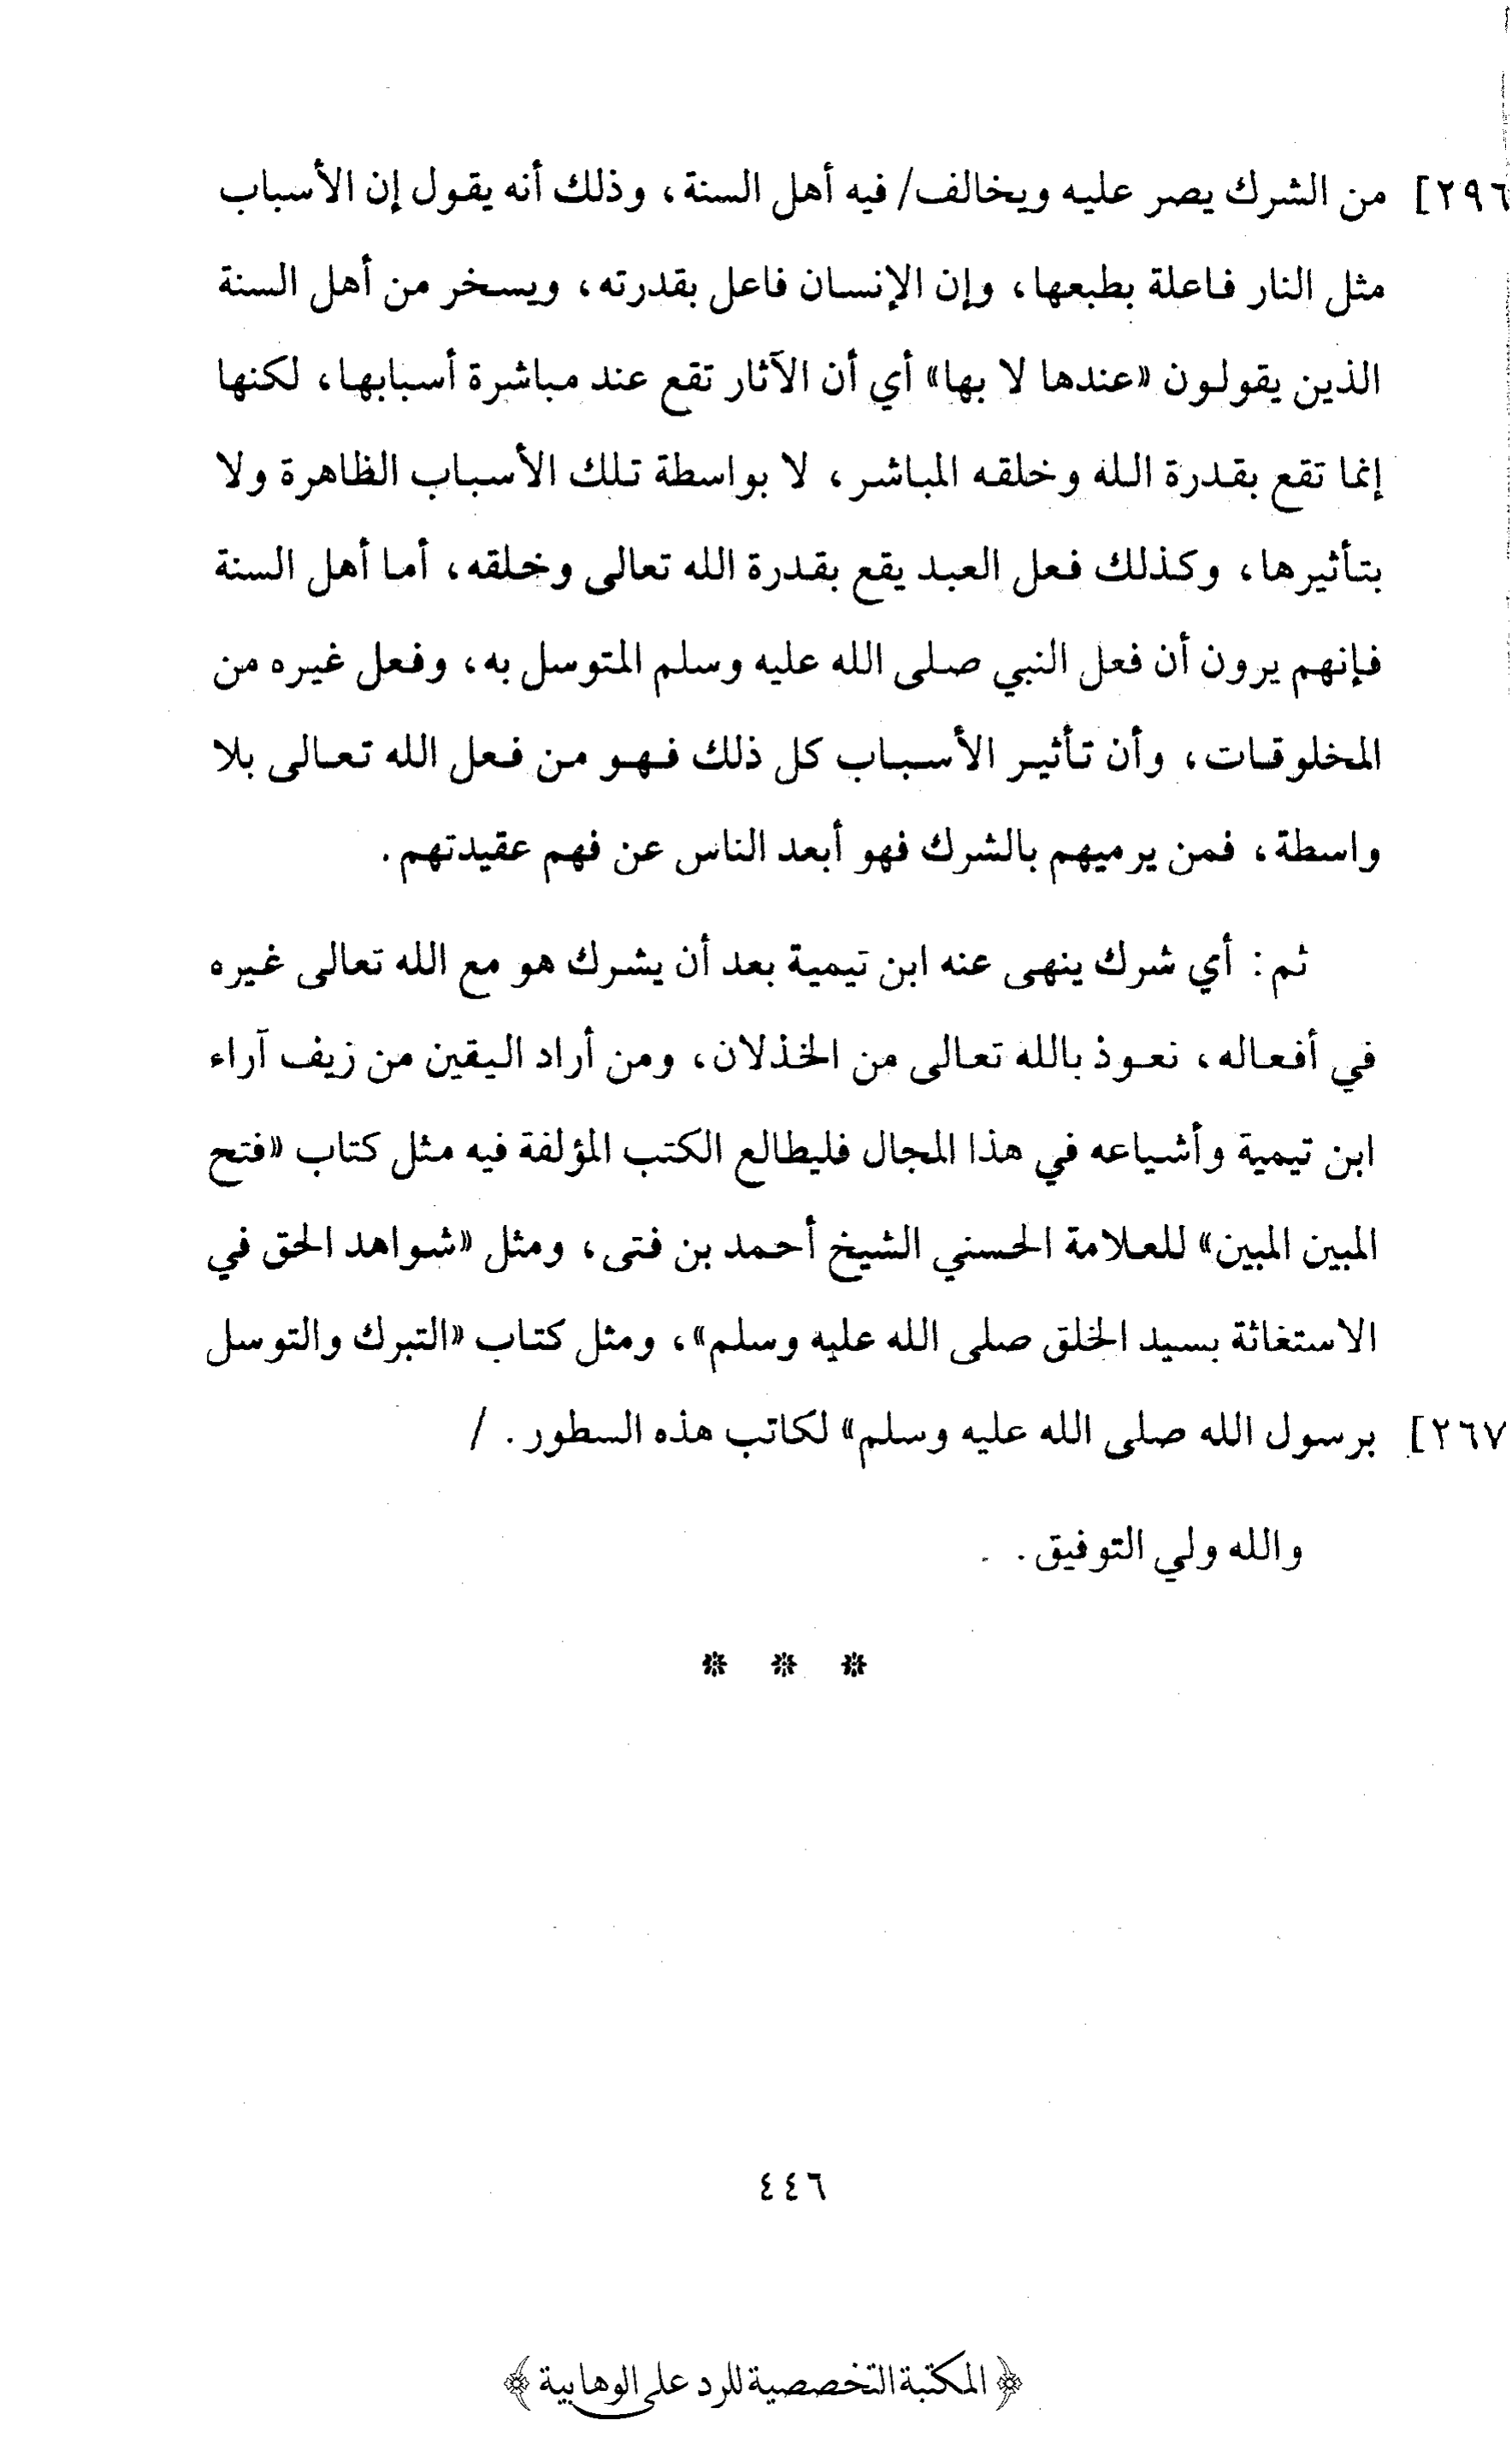 ٢٩٦] من الشرك يصر عليه ويخالف/ فيه أهل السنة، وذلك أنه يقول إن الأسباب
مثل النار فاعلة بطبعها، وإن الإنسان فاعل بقدرته، ويسخر من أهل السنة
الذين يقولون «عندها لا بها» أي أن الآثار تقع عند مباشرة أسبابها، لكنها
إنما تقع بقدرة الله وخلقه المباشر، لا بواسطة تلك الأسباب الظاهرة ولا
بتأثيرها، وكذلك فعل العبد يقع بقدرة الله تعالى وخلقه، أما أهل السنة
فإنهم يرون أن فعل النبي صلى الله عليه وسلم المتوسل به، وفعل غيره من
المخلوقات، وأن تأثير الأسباب كل ذلك فهو من فعل الله تعالى بلا
واسطة، فمن يرميهم بالشرك فهو أبعد الناس عن فهم عقيدتهم.
ثم: أي شرك ينهى عنه ابن تيمية بعد أن يشرك هو مع الله تعالى غيره
في أفعاله، نعوذ بالله تعالى من الخذلان، ومن أراد اليقين من زيف آراء
ابن تيمية وأشياعه في هذا المجال فليطالع الكتب المؤلفة فيه مثل كتاب «فتح
المبين المبين» للعلامة الحسني الشيخ أحمد بن فتى، ومثل «شواهد الحق في
الاستغاثة بسيد الخلق صلى الله عليه وسلم»، ومثل كتاب «التبرك والتوسل
٢٦٧] برسول الله صلى الله عليه وسلم» لكاتب هذه السطور. /
والله ولي التوفيق.
* * *
٤٤٦
﴿المكتبة التخصصية للرد على الوهابية﴾